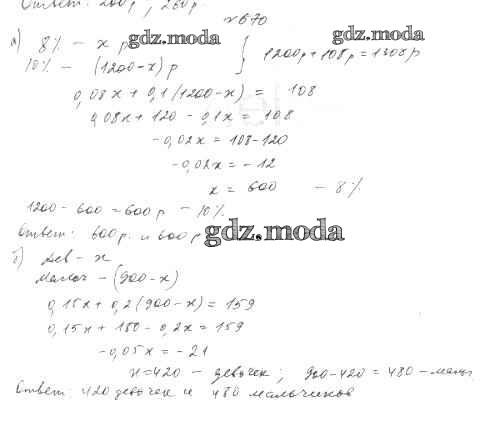 Ответ: 200р, 260р.
№ 670
а) 8% – х р
10% – (1200-х) р
1200р + 108р = 1308р
gdz.moda
gdz.moda
0,08х + 0,1(1200-х) = 108
0,08х + 120 - 0,1х = 108
-0,02х = 108-120
-0,02х = -12
х = 600 – 8%
1200 - 600 = 600р – 10%
Ответ: 600р. и 600р
gdz.moda
б) Дев – х
Мальч – (900-х)
0,15х + 0,2(900-х) = 159
0,15х + 180 - 0,2х = 159
-0,05х = -21
х=420 – девочек; 900-420 = 480 – мальч
Ответ: 420 девочек и 480 мальчиков